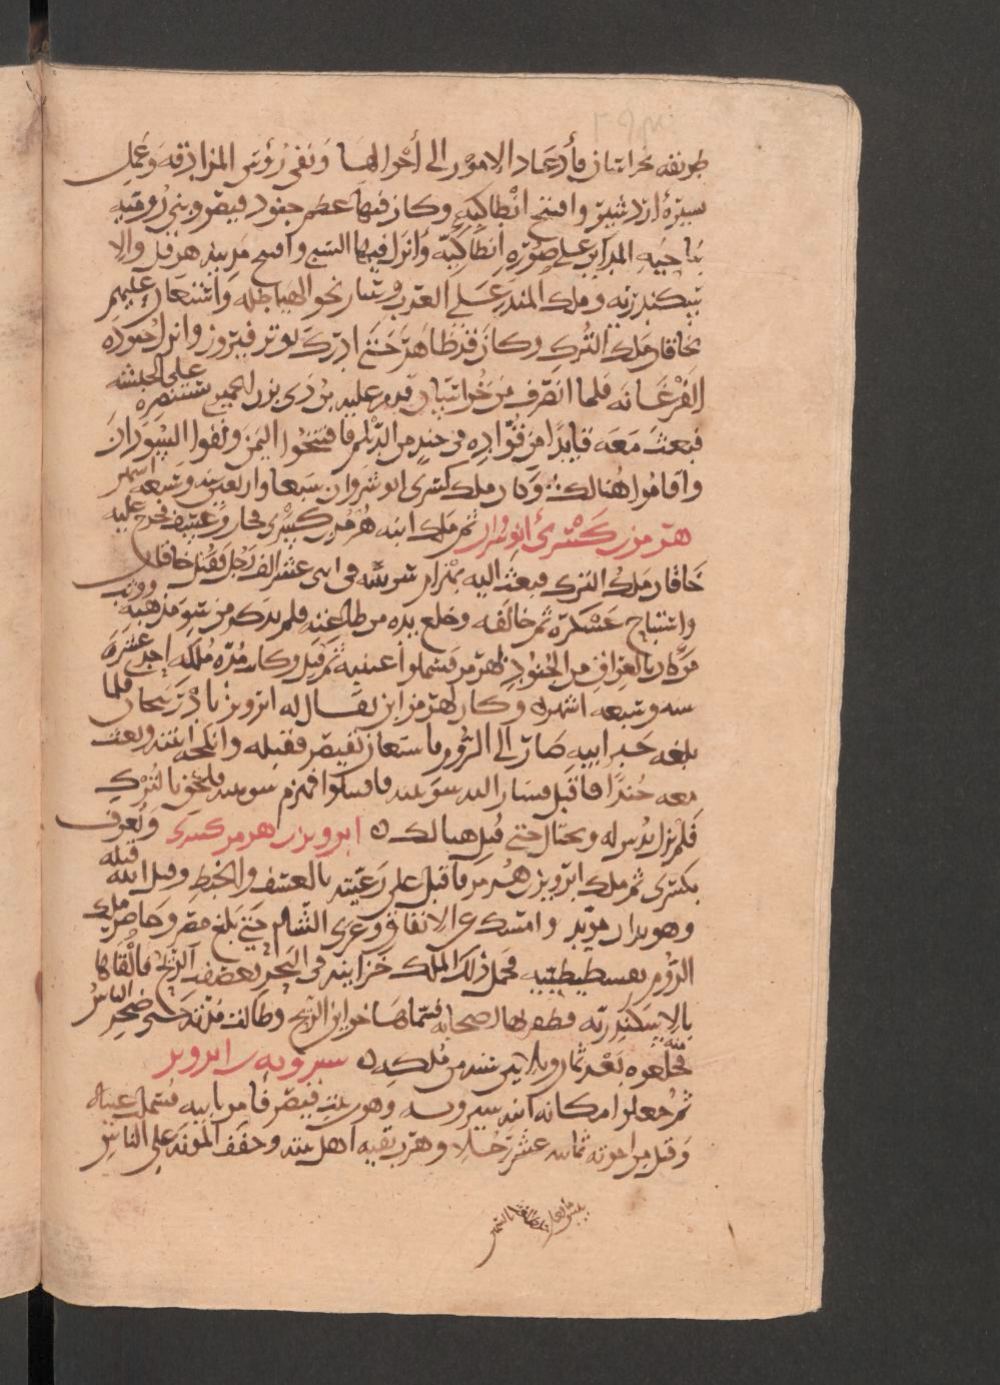 طريقه بخراسان فأدعماد الامور الى أحوالها ونفى رؤس المزادقه وعمل
سيرة ازدشير وافتتح انطاكيه وكان فيها عظم جنود قيصر وبنى روميه
بناحيه المداين على صوره انطاكيه وانزل فيها السبي وافتتح مدينه هرقل والا
سكندريه وملك المنذر على العرب وسار نحو الهياطله واستعان عليهم
بخاقان ملك الترك وكان قد ظاهره حتى ادرك بوتر فيروز وانزل جنوده
الفرغانه فلما انصرف من خراسان قدم عليه بن ذي يزن الحميري يستنصره على الحبشه
فبعث معه قايدا من قواده في جند من الديلم فافتتحوا اليمن ونفوا السودان
واقاموا هنالك وكان ملك كسرى انوشروان سبعا واربعين سنه وسبعه اشهر
هرمز بن كسرى انوشروان ثم ملك ابنه هرمز بن كسرى فجار وعسف فخرج عليه
خاقان ملك الترك فبعث اليه بهرام شوبينه في اثنى عشر الف رجل فقتل خاقان
واستباح عسكره ثم خالفه وخلع يده من طاعته فلم يدكر من سو مذهبه ووثب
من كان بالعراق من الجنود بهرمز فسملوا أعينيه ثم قتل وكان مده ملكه احد عشره
سنه وسبعه اشهر وكان لهرمز ابن يقال له ابرويز باذربيجان فلما
بلغه خبر ابيه صار الى الروم فاستعان بقيصر فقبله وانكحه ابنته وبعث
معه جندا فاقبل فسار اليه شوبينه فاقتتلوا فهزم شوبينه فلحق بالترك
فلم يزل يدس له ويحتال حتى قتل هنالك ابرويز بن هرمز كسرى ويعرف
بكسرى ثم ملك ابرويز بن هرمز فاقبل على رعيته بالعسف والخبط وقيل انه قبله
وهو يدان مؤبد وامسك عن الانفاق وغزى الشام حتى بلغ مصر وحاصر ملك
الروم بقسطيطينيه فحمل ذلك الملك خزاينه في البحر فعصفت الريح فالقاها
بالاسكندريه فظفر بها اصحابه فسماها خزاين الريح وطالت مدته حتى ضجر الناس
منه فخلعوه بعد ثمان وثلاثين سنه من ملكه سيرويه بن ابرويز
ثم جعلوا مكانه ابنه سيرويه وهو بن بنت قيصر فامر بابيه فسملت عيناه
وقتل من اخوته ثمانيه عشر رجلا وهرب بقيه اهل بيته وخفف المونه على الناس